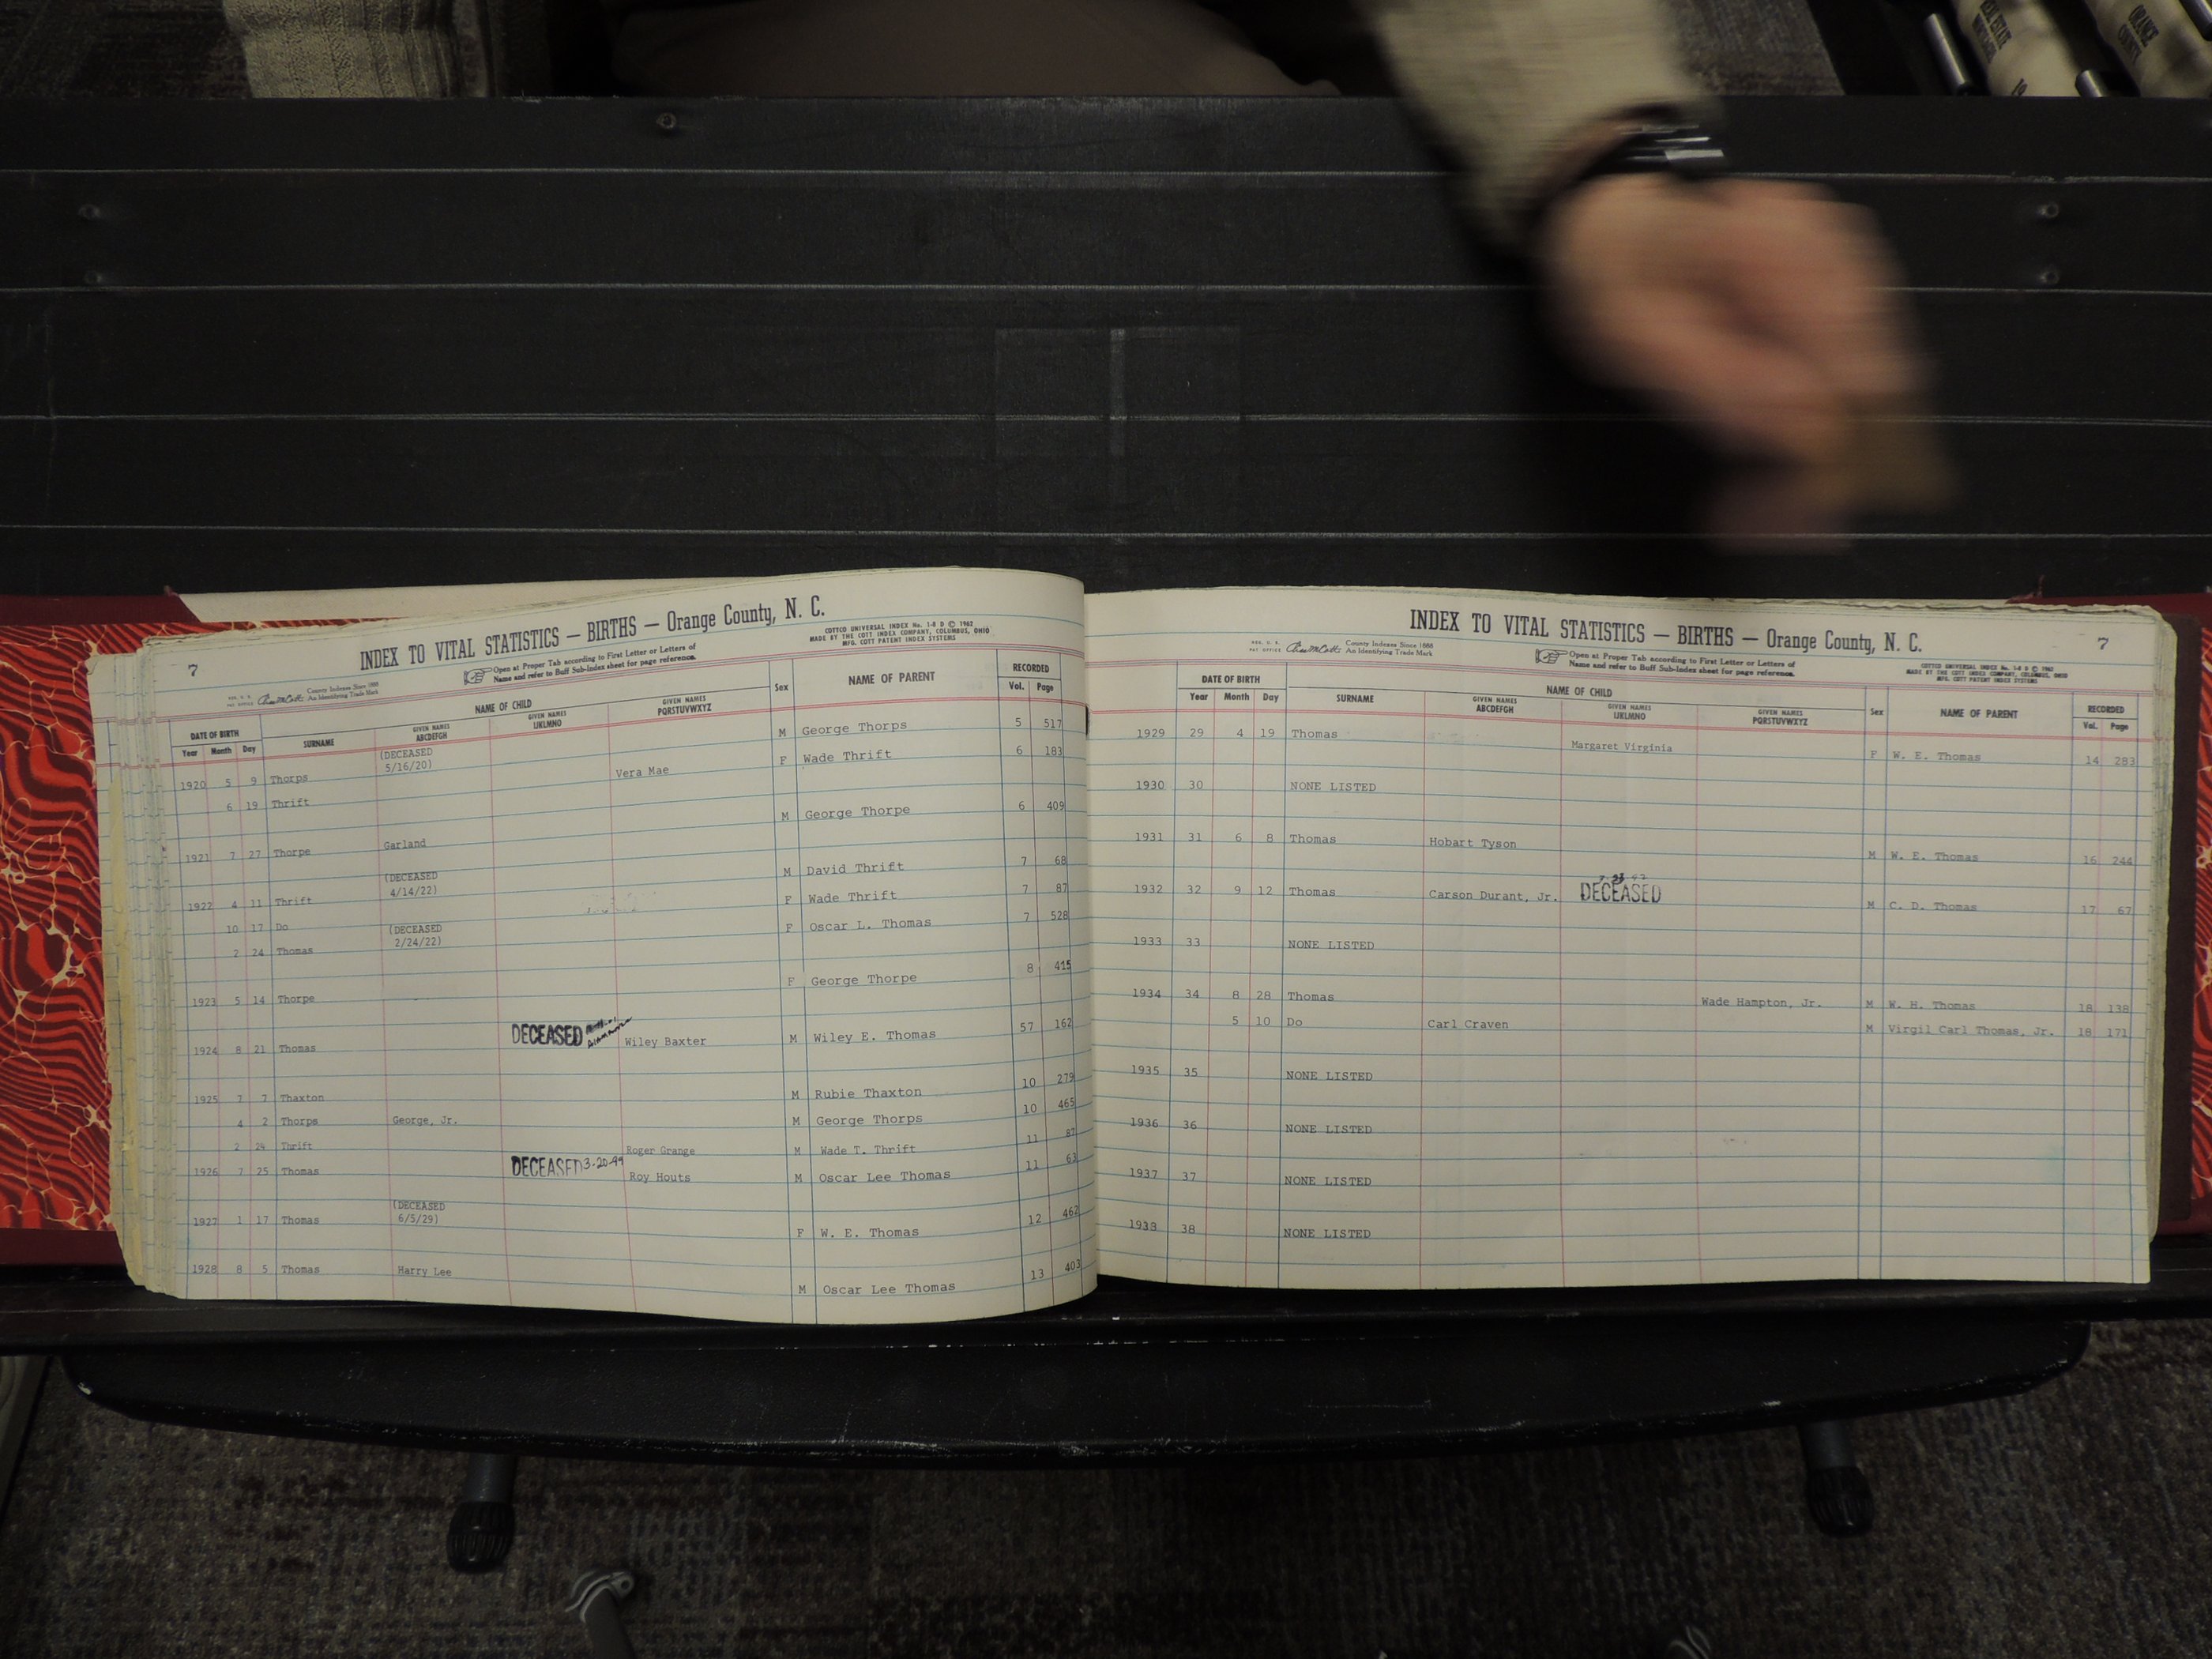 REAL ESTATE
19
ORANGE
COUNTY
7
INDEX TO VITAL STATISTICS — BIRTHS — Orange County, N. C.
COTTCO UNIVERSAL INDEX No. 1-8 D © 1962
MADE BY THE COTT INDEX COMPANY, COLUMBUS, OHIO
MFG. COTT PATENT INDEX SYSTEMS
Open at Proper Tab according to First Letter or Letters of
Name and refer to Buff Sub-Index sheet for page reference.
REG. U. S. PAT OFFICE County Indexes Since 1888
An Identifying Trade Mark
DATE OF BIRTH NAME OF CHILD Sex NAME OF PARENT RECORDED
Year Month Day SURNAME GIVEN NAMES ABCDEFGH GIVEN NAMES IJKLMNO GIVEN NAMES PQRSTUVWXYZ Vol. Page
1920 5 9 Thorps (DECEASED 5/16/20) M George Thorps 5 517
6 19 Thrift Vera Mae F Wade Thrift 6 183
1921 7 27 Thorpe Garland M George Thorpe 6 409
1922 4 11 Thrift (DECEASED 4/14/22) M David Thrift 7 68
10 17 Do F Wade Thrift 7 87
2 24 Thomas (DECEASED 2/24/22) F Oscar L. Thomas 7 528
1923 5 14 Thorpe F George Thorpe 8 415
1924 8 21 Thomas DECEASED Wiley Baxter M Wiley E. Thomas 57 162
1925 7 7 Thaxton M Rubie Thaxton 10 279
4 2 Thorps George, Jr. M George Thorps 10 465
2 24 Thrift Roger Grange M Wade T. Thrift 11 87
1926 7 25 Thomas DECEASED 3-20-99 Roy Houts M Oscar Lee Thomas 11 63
1927 1 17 Thomas (DECEASED 6/5/29) F W. E. Thomas 12 462
1928 8 5 Thomas Harry Lee M Oscar Lee Thomas 13 403
INDEX TO VITAL STATISTICS — BIRTHS — Orange County, N. C.
7
REG. U. S. PAT OFFICE County Indexes Since 1888
An Identifying Trade Mark
Open at Proper Tab according to First Letter or Letters of
Name and refer to Buff Sub-Index sheet for page reference.
COTTCO UNIVERSAL INDEX No. 1-8 D © 1962
MADE BY THE COTT INDEX COMPANY, COLUMBUS, OHIO
MFG. COTT PATENT INDEX SYSTEMS
DATE OF BIRTH NAME OF CHILD Sex NAME OF PARENT RECORDED
Year Month Day SURNAME GIVEN NAMES ABCDEFGH GIVEN NAMES IJKLMNO GIVEN NAMES PQRSTUVWXYZ Vol. Page
1929 29 4 19 Thomas Margaret Virginia F W. E. Thomas 14 283
1930 30 NONE LISTED
1931 31 6 8 Thomas Hobart Tyson M W. E. Thomas 16 244
1932 32 9 12 Thomas Carson Durant, Jr. DECEASED M C. D. Thomas 17 67
1933 33 NONE LISTED
1934 34 8 28 Thomas Wade Hampton, Jr. M W. H. Thomas 18 138
5 10 Do Carl Craven M Virgil Carl Thomas, Jr. 18 171
1935 35 NONE LISTED
1936 36 NONE LISTED
1937 37 NONE LISTED
1938 38 NONE LISTED